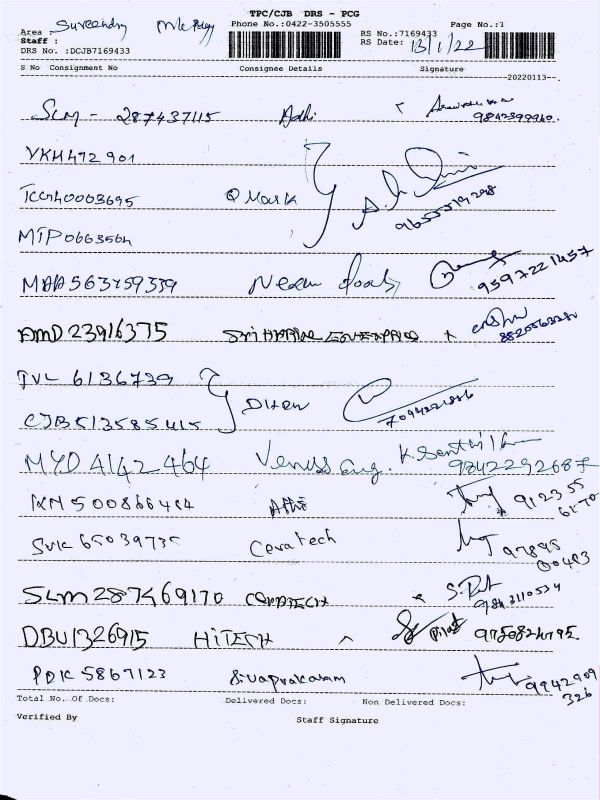 TPC/CJB DRS - PCG
Area : Surendry
Phone No.:0422-3505555
Page No.:1
Staff :
RS No.:7169433
DRS No. :DCJB7169433
RS Date: 13/1/22
S No Consignment No Consignee Details Signature
20220113
SLM - 287437115 Adhi 9842399940
VKM472901
TCG40003695 Q Mark 9655519298
MTP0663564
MAA563759339 Neem foods 9597221457
AMD23916375 8820563280
TVL 6136739
CJB513585415 7094221886
MYD 4142 464 Venus Eng. K. Senthil 9842292687
KN500866484 Athi 912355
6170
SVK 65039735 Ceratech 97895
00483
SLM287469170 CERATECH S. 9843110534
DBU1326915 HITECH
PDK 5867123 Sivaprakasam 9942909
326
Total No. Of Docs: Delivered Docs: Non Delivered Docs:
Verified By Staff Signature